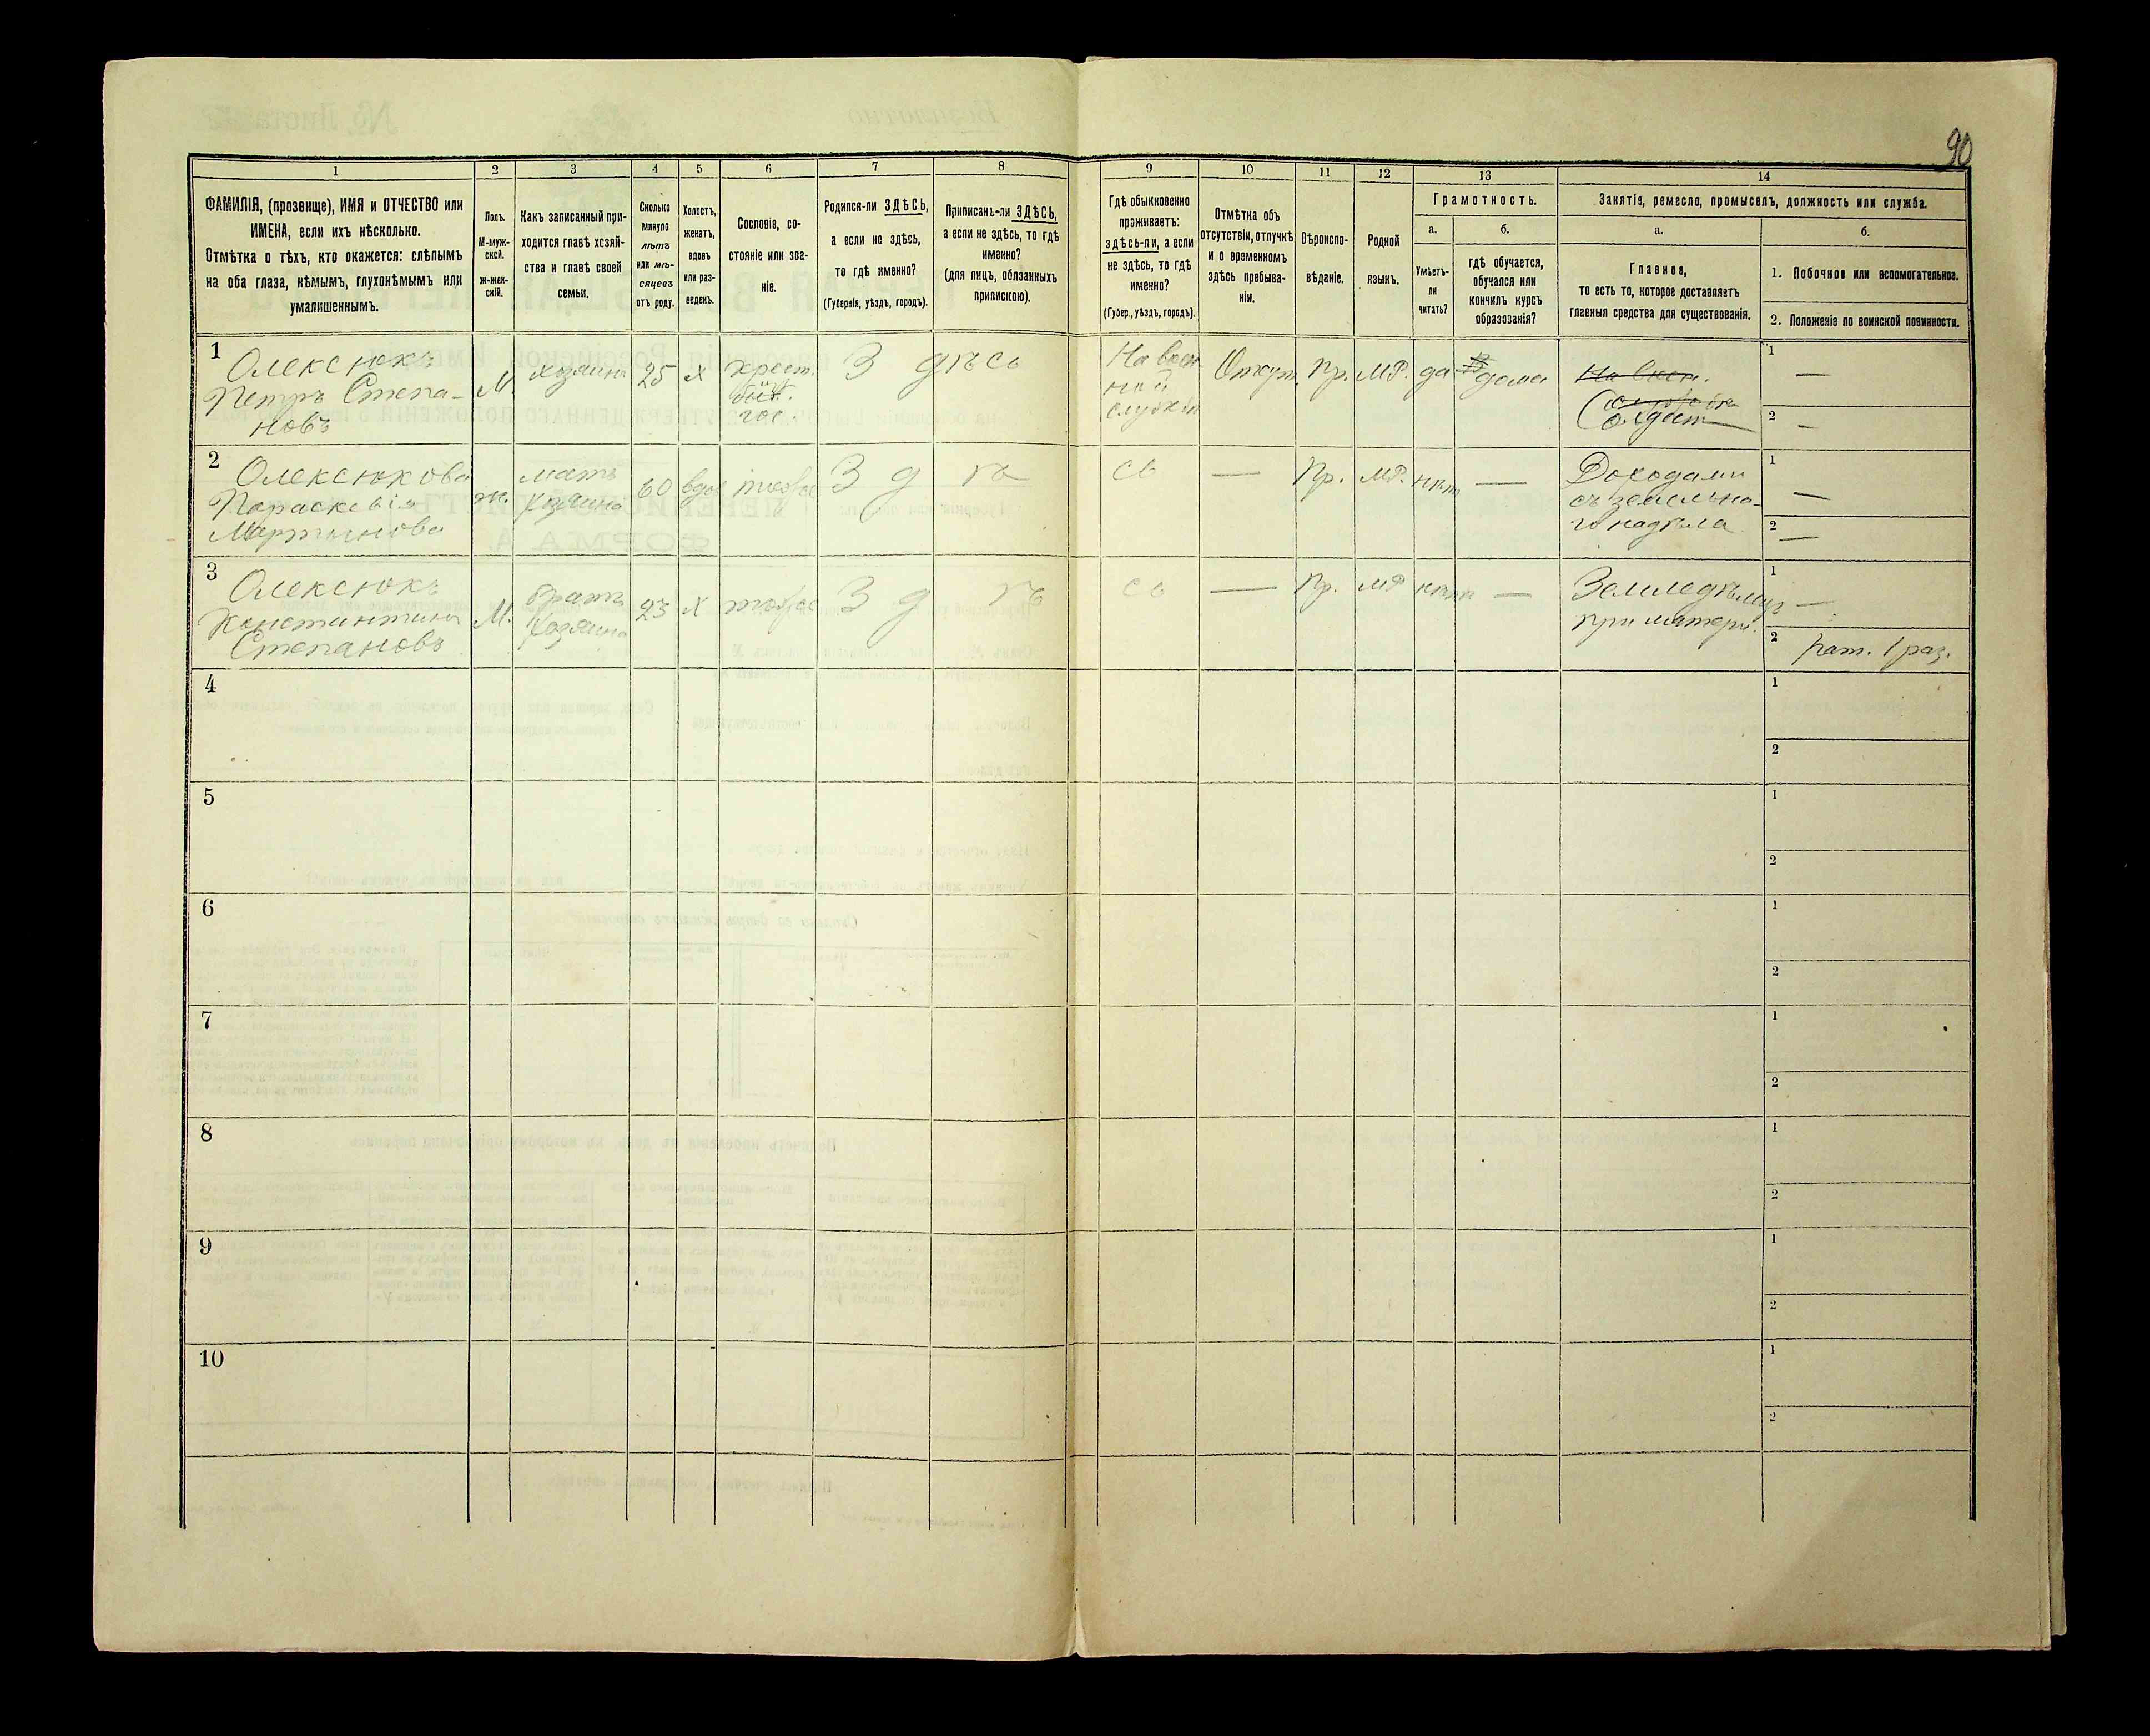 90
1
2
3
4
5
6
7
8
9
10
11
12
13
14
ФАМИЛІЯ, (прозвище), ИМЯ и ОТЧЕСТВО или
ИМЕНА, если ихъ нѣсколько.
Отмѣтка о тѣхъ, кто окажется: слѣпымъ
на оба глаза, нѣмымъ, глухонѣмымъ или
умалишеннымъ.
Полъ.
М-муж-
ской.
ж-жен-
скій.
Какъ записанный при-
ходится главѣ хозяй-
ства и главѣ своей
семьи.
Сколько
минуло
лѣтъ
или мѣ-
сяцевъ
отъ роду.
Холостъ,
женатъ,
вдовъ
или раз-
веденъ.
Сословіе, со-
стояніе или зва-
ніе.
Родился-ли ЗДѢСЬ,
а если не здѣсь,
то гдѣ именно?
(Губернія, уѣздъ, городъ).
Приписанъ-ли ЗДѢСЬ,
а если не здѣсь, то гдѣ
именно?
(для лицъ, обязанныхъ
припискою).
Гдѣ обыкновенно
проживаетъ:
здѣсь-ли, а если
не здѣсь, то гдѣ
именно?
(Губер., уѣздъ, городъ).
Отмѣтка объ
отсутствіи, отлучкѣ
и о временномъ
здѣсь пребыва-
ніи.
Вѣроиспо-
вѣданіе.
Родной
языкъ.
Грамотность.
а.
Умѣетъ-
ли
читать?
б.
гдѣ обучается,
обучался или
кончилъ курсъ
образованія?
Занятіе, ремесло, промыселъ, должность или служба.
а.
Главное,
то есть то, которое доставляетъ
главныя средства для существованія.
б.
1. Побочное или вспомогательное.
2. Положеніе по воинской повинности.
1
Олексюкъ
Петръ Степа-
новъ
М.
хозяинъ
25
х
крест.
гос.
Здѣсь
На воен
ной
службѣ
Отсут.
Пр.
МР.
да
дома
На воен.
Солдат
1 —
2 —
2
Олексюкова
Параскевія
Мартинова
ж.
мать
хозяина
60
вдов
тоже
З д ѣ сь
—
Пр.
МР.
нѣт
—
Доходами
съ земельна-
го надѣла
1 —
2 —
3
Олексюкъ
Константинъ
Степановъ
М.
братъ
хозяина
23
х
тоже
З д ѣ сь
—
Пр.
МР
нѣтъ
—
Земледѣлец
при матери.
1 —
2 рат. 1 раз.
4
1
2
5
1
2
6
1
2
7
1
2
8
1
2
9
1
2
10
1
2